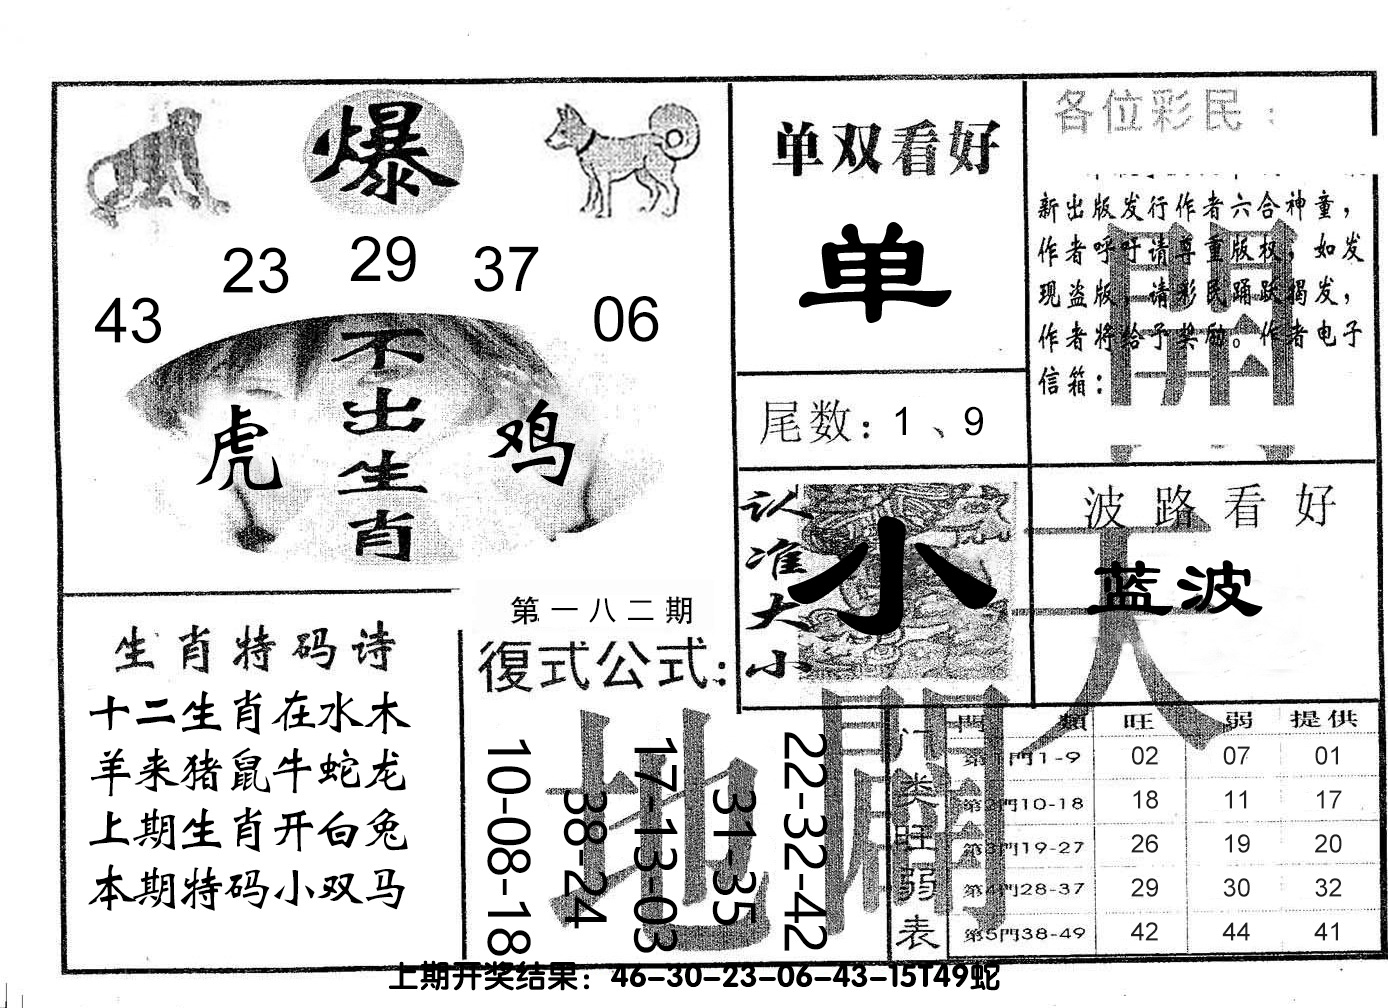 爆
43 23 29 37 06
不出生肖
虎 鸡
单双看好
单
尾数：1、9
各位彩民：
新出版发行作者六合神童，
作者呼吁请尊重版权，如发
现盗版，请彩民踊跃揭发，
作者将给予奖励。作者电子
信箱：
認准大小
小
波路看好
蓝波
天
開
生肖特码诗
十二生肖在水木
羊来猪鼠牛蛇龙
上期生肖开白兔
本期特码小双马
第一八二期
復式公式：
10-08-18
38-24
17-13-03
31-35
22-32-42
地
門类旺弱表
門類 旺 弱 提供
第1門1-9 02 07 01
第2門10-18 18 11 17
第3門19-27 26 19 20
第4門28-37 29 30 32
第5門38-49 42 44 41
上期开奖结果：46-30-23-06-43-15T49蛇